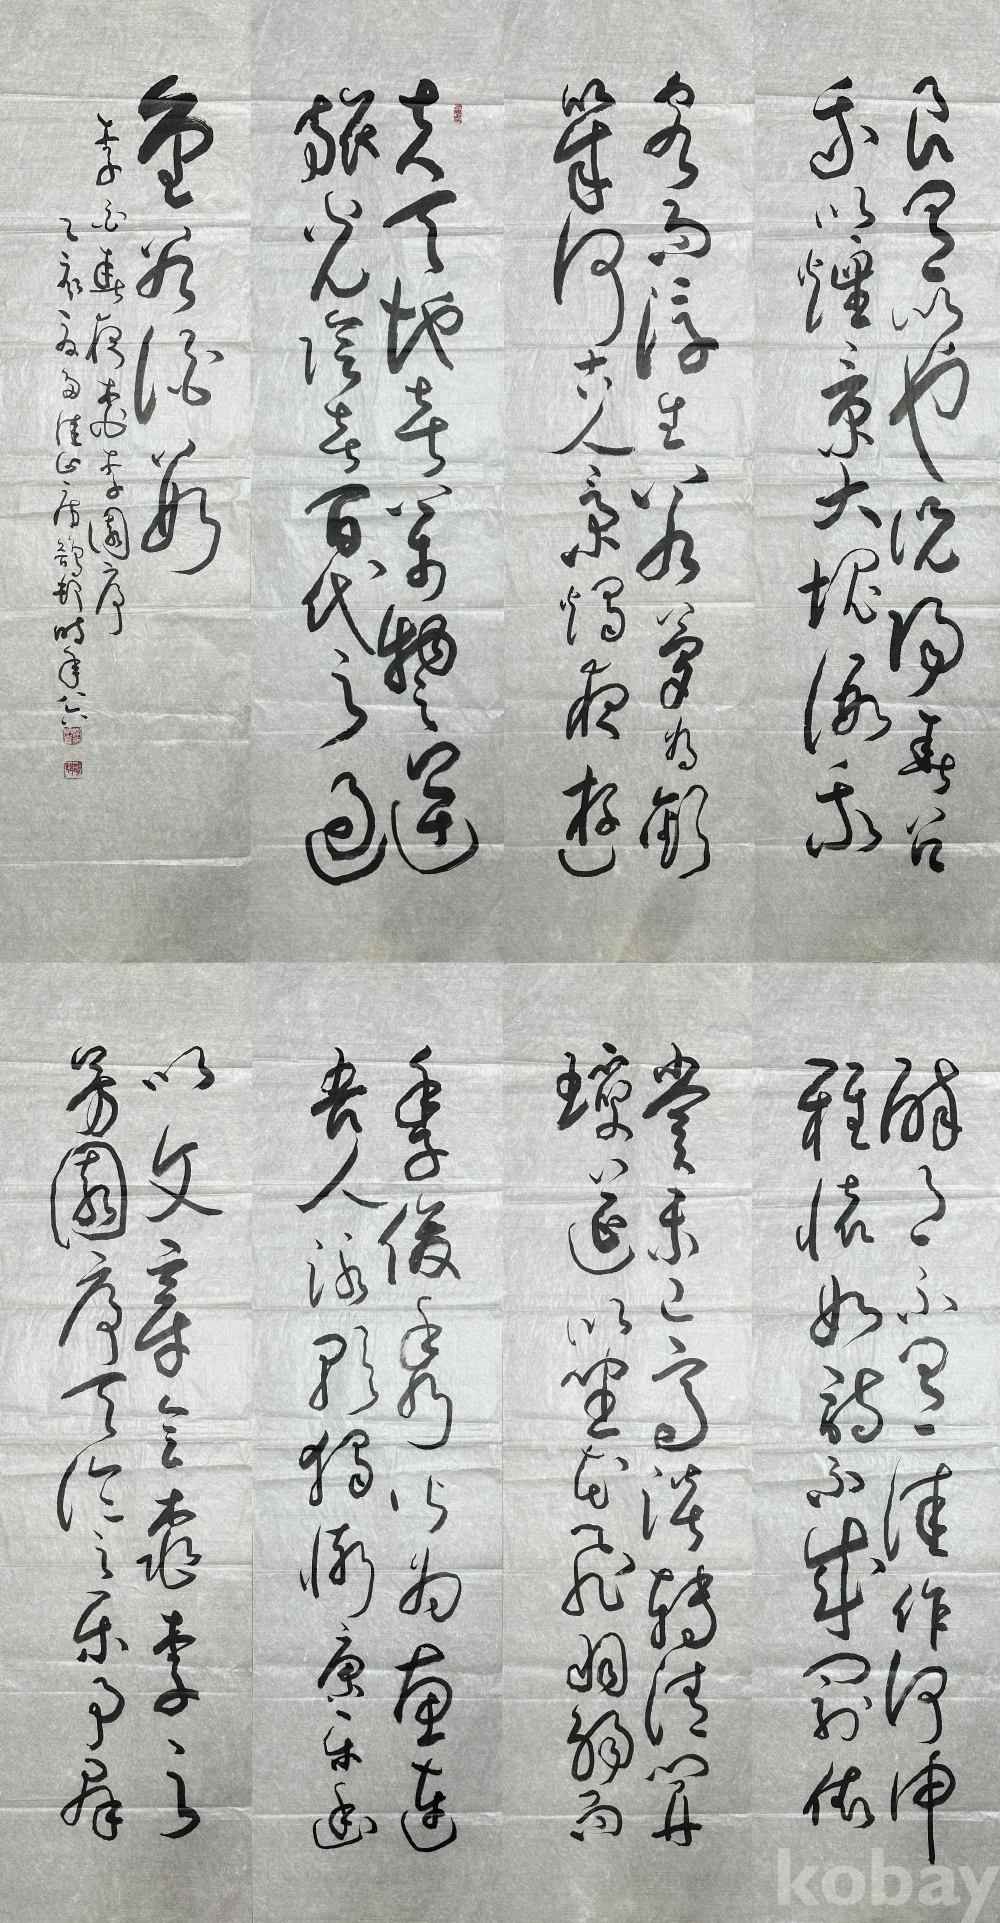 夫天地者萬物之逆
旅光陰者百代之過
客而浮生若夢為歡
幾何古人秉燭夜遊
良有以也況陽春召
我以煙景大塊假我
以文章會桃李之
芳園序天倫之樂事群
季俊秀皆為惠連
吾人詠歌獨慚康樂幽
賞未已高談轉清開
瓊筵以坐花飛羽觴而
醉月不有佳作何伸
雅懷如詩不成罰依
金谷酒數
李白春夜桃李園序
乙亥 時年八六
kobay